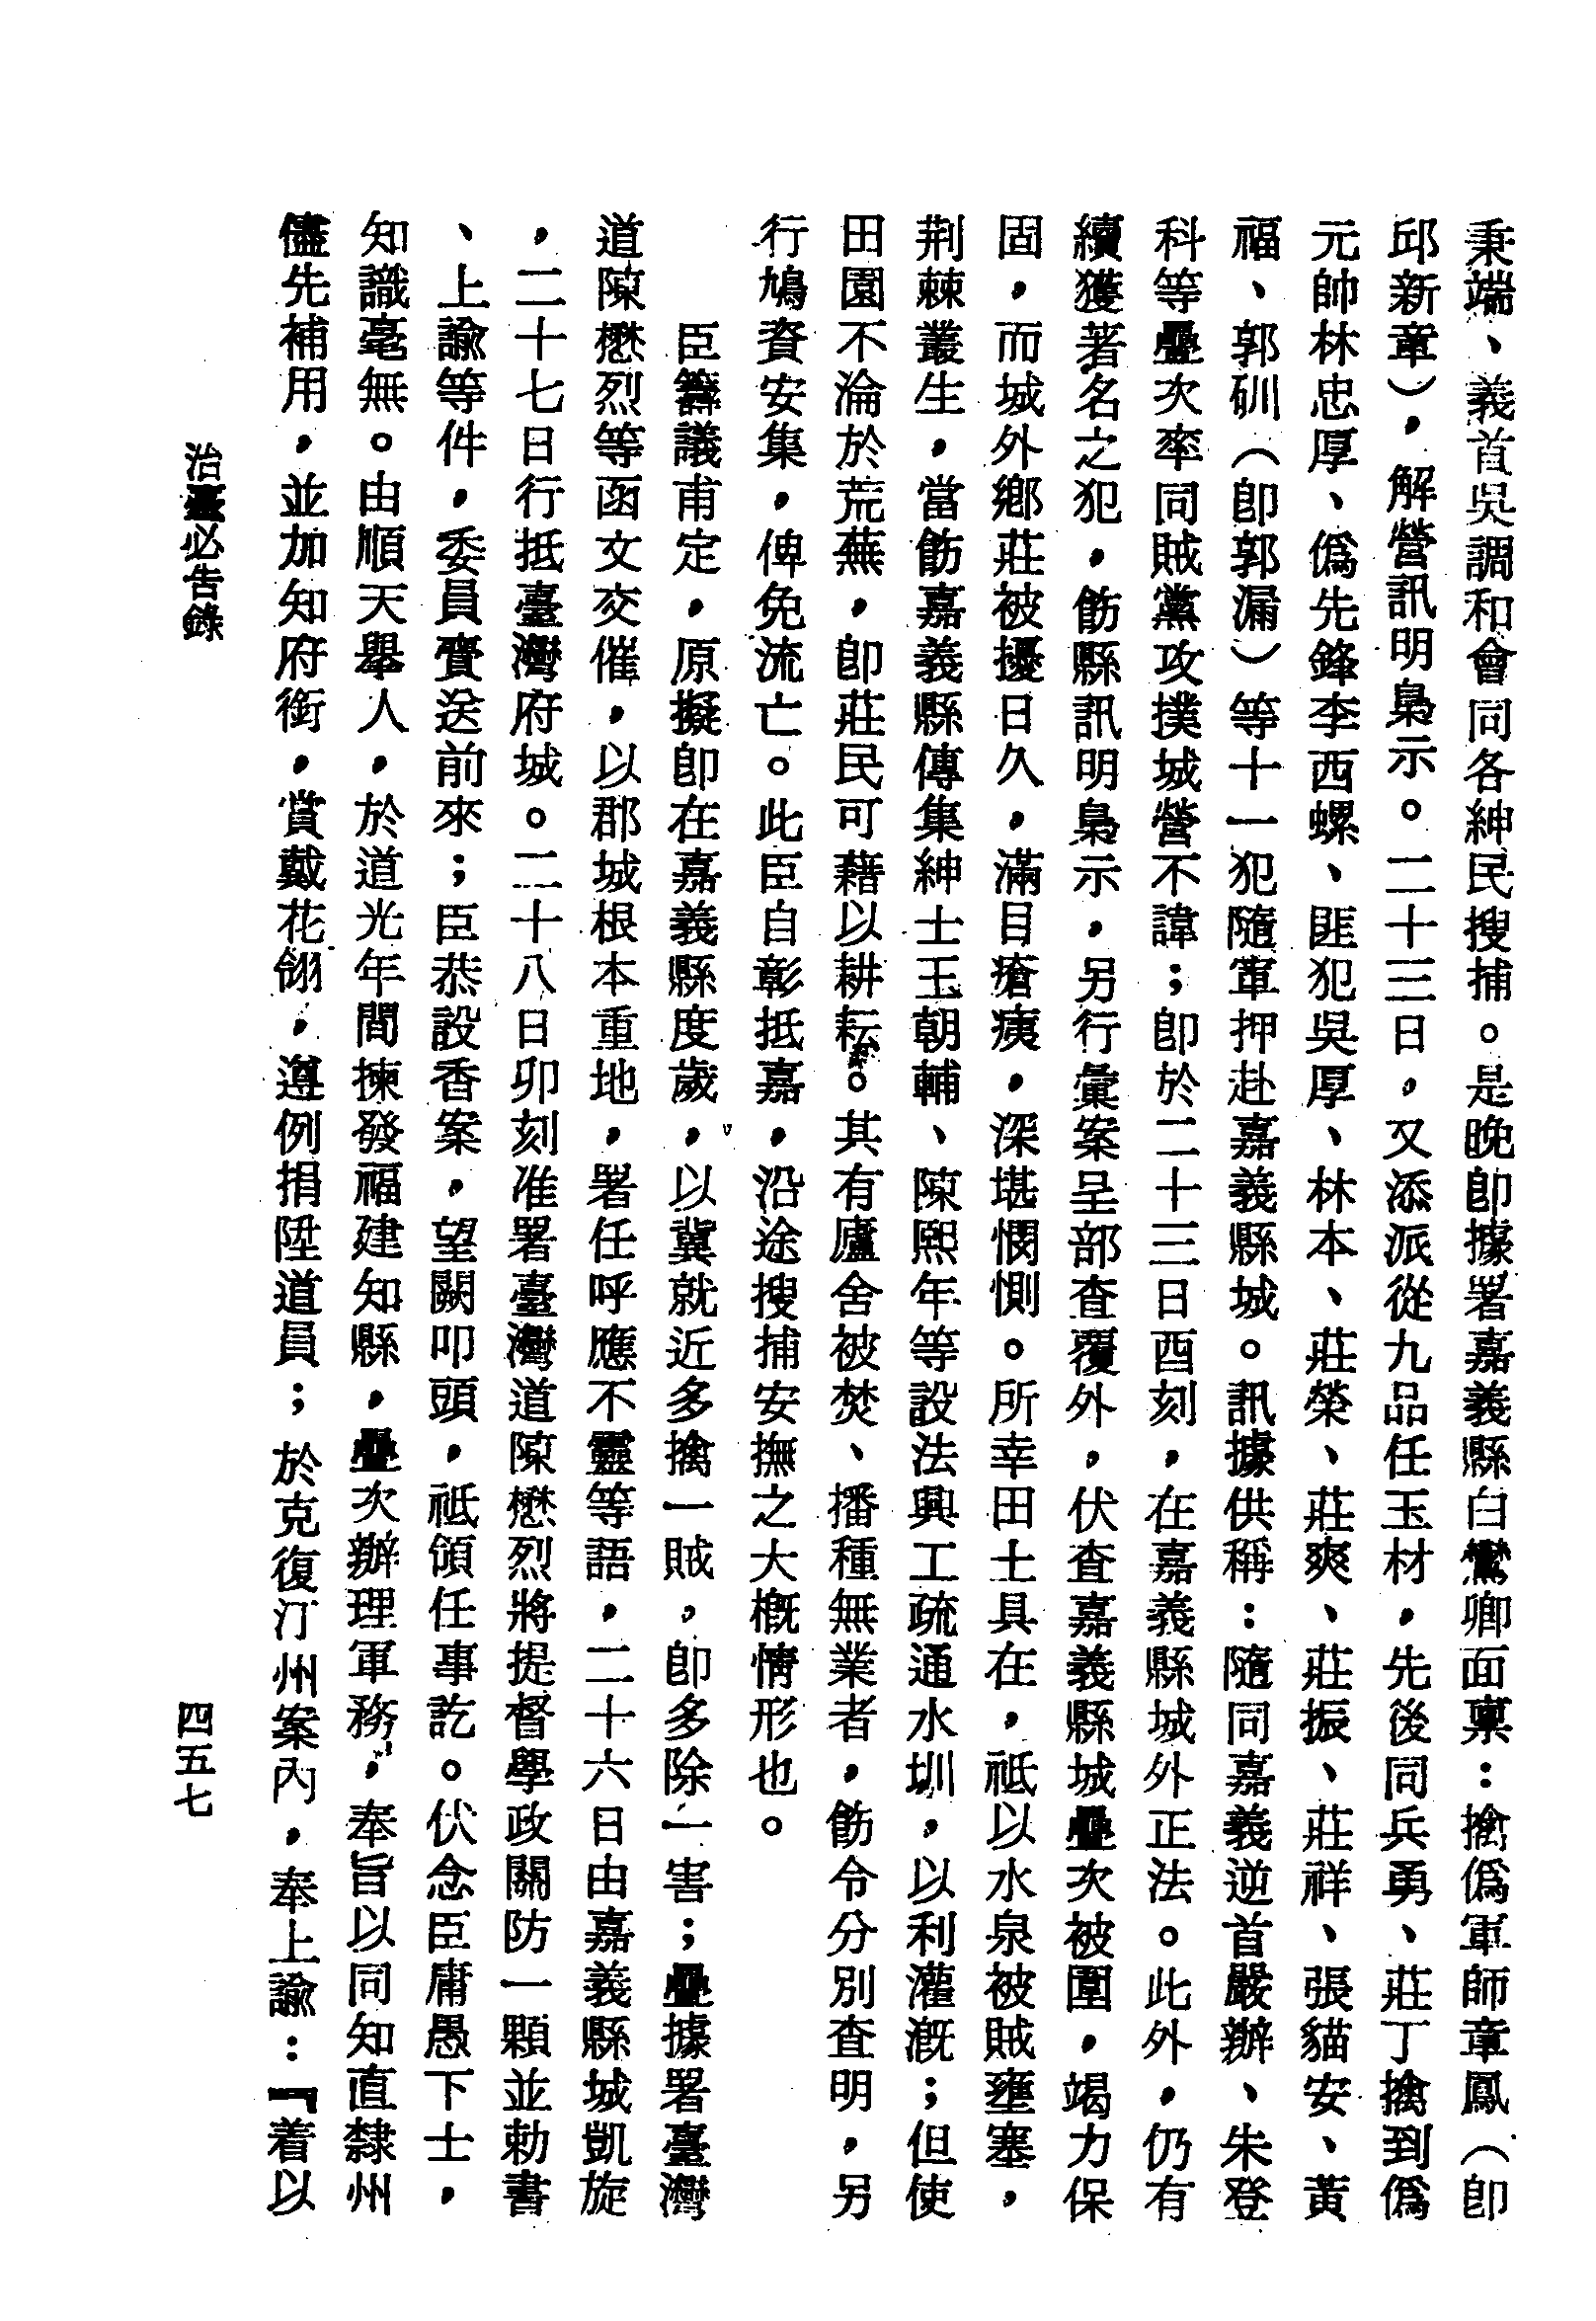 秉端、義首吳調和會同各紳民搜捕。是晚卽據署嘉義縣白鸞卿面稟：擒僞軍師章鳳（卽
邱新章），解營訊明梟示。二十三日，又添派從九品任玉材，先後同兵勇、莊丁擒到僞
元帥林忠厚、僞先鋒李西螺、匪犯吳厚、林本、莊榮、莊爽、莊振、莊祥、張貓安、黃
福、郭硎（卽郭漏）等十一犯隨軍押赴嘉義縣城。訊據供稱：隨同嘉義逆首嚴辦、朱登
科等疊次率同賊黨攻撲城營不諱；卽於二十三日酉刻，在嘉義縣城外正法。此外，仍有
續獲著名之犯，飭縣訊明梟示，另行彙案呈部查覆外，伏查嘉義縣城疊次被圍，竭力保
固，而城外鄉莊被擾日久，滿目瘡痍，深堪憫惻。所幸田土具在，祗以水泉被賊壅塞，
荆棘叢生，當飭嘉義縣傳集紳士王朝輔、陳熙年等設法興工疏通水圳，以利灌溉；但使
田園不淪於荒蕪，卽莊民可藉以耕耘。其有廬舍被焚、播種無業者，飭令分別查明，另
行鳩資安集，俾免流亡。此臣自彰抵嘉，沿途搜捕安撫之大槪情形也。
臣籌議甫定，原擬卽在嘉義縣度歲，以冀就近多擒一賊，卽多除一害；疊據署臺灣
道陳懋烈等函文交催，以郡城根本重地，署任呼應不靈等語，二十六日由嘉義縣城凱旋
，二十七日行抵臺灣府城。二十八日卯刻准署臺灣道陳懋烈將提督學政關防一顆並勅書
、上諭等件，委員賫送前來；臣恭設香案，望闕叩頭，祗領任事訖。伏念臣庸愚下士，
知識毫無。由順天舉人，於道光年間揀發福建知縣，疊次辦理軍務，奉旨以同知直隸州
儘先補用，並加知府銜，賞戴花翎，遵例捐陞道員；於克復汀州案內，奉上諭：『着以
治臺必告錄
四五七